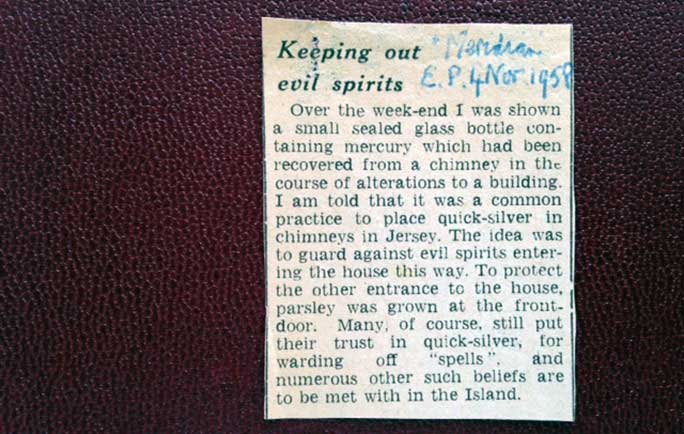 Keeping out "Meridian"
evil spirits E.P. 4 Nov. 1958
Over the week-end I was shown
a small sealed glass bottle con-
taining mercury which had been
recovered from a chimney in the
course of alterations to a building.
I am told that it was a common
practice to place quick-silver in
chimneys in Jersey. The idea was
to guard against evil spirits enter-
ing the house this way. To protect
the other entrance to the house,
parsley was grown at the front-
door. Many, of course, still put
their trust in quick-silver, for
warding off "spells", and
numerous other such beliefs are
to be met with in the Island.